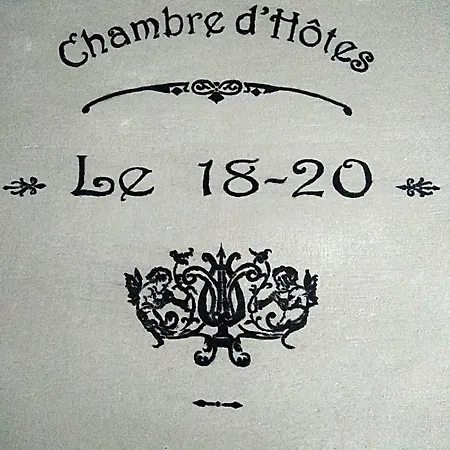 Chambre d'Hôtes
Le 18-20